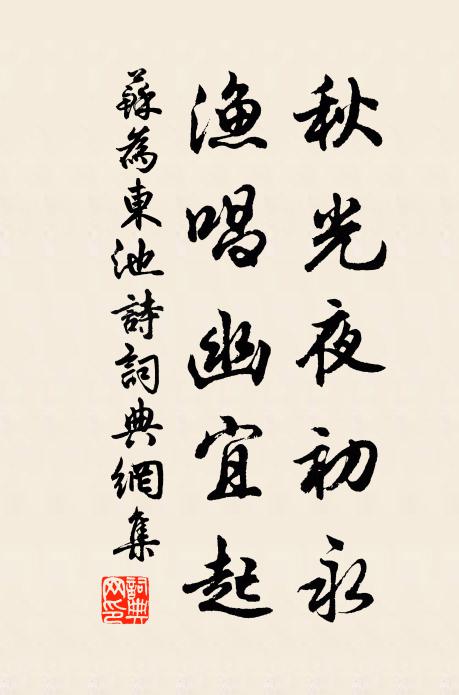 秋光夜初永
漁唱幽宜起
蘇為東池詩詞典網集
詞典
網印